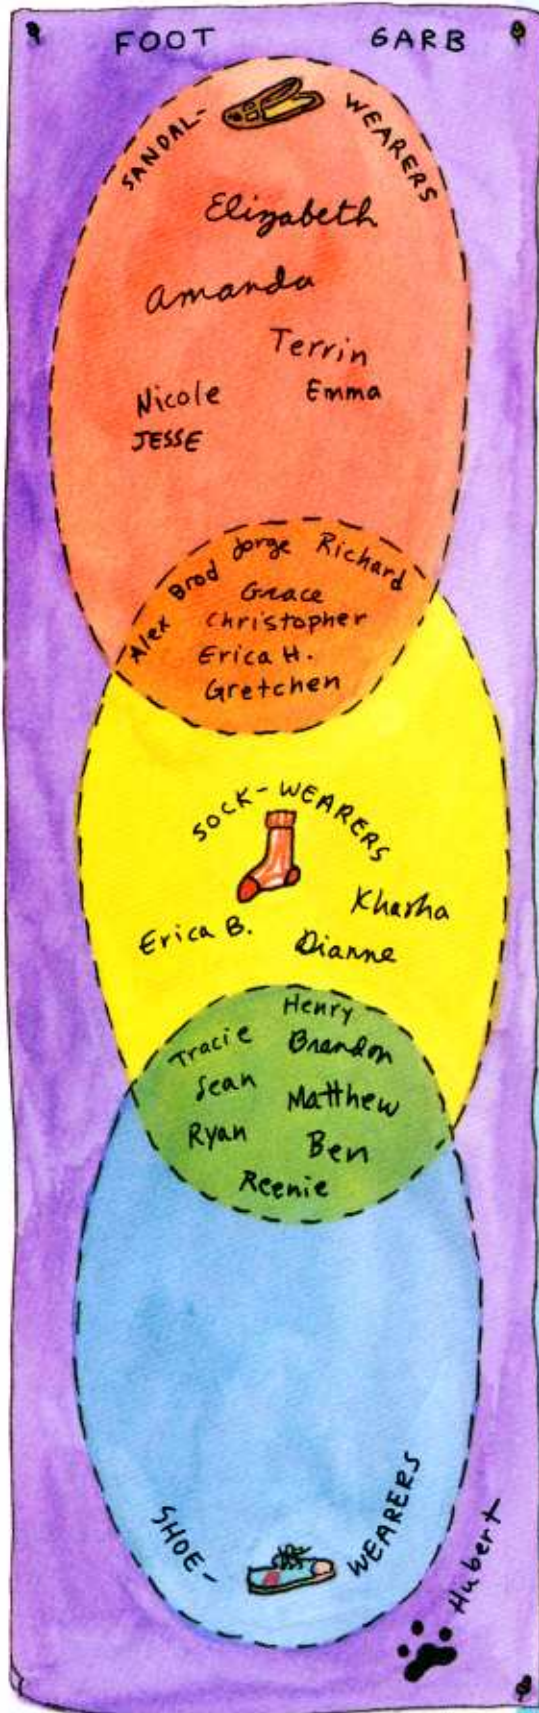 FOOT GARB
SANDAL- WEARERS
Elizabeth
Amanda
Terrin
Nicole Emma
JESSE
Alex Brad Jorge Richard
Grace
Christopher
Erica H.
Gretchen
SOCK-WEARERS
Khasha
Erica B. Dianne
Henry
Tracie Brandon
Sean Matthew
Ryan Ben
Reenie
SHOE- WEARERS
Hubert